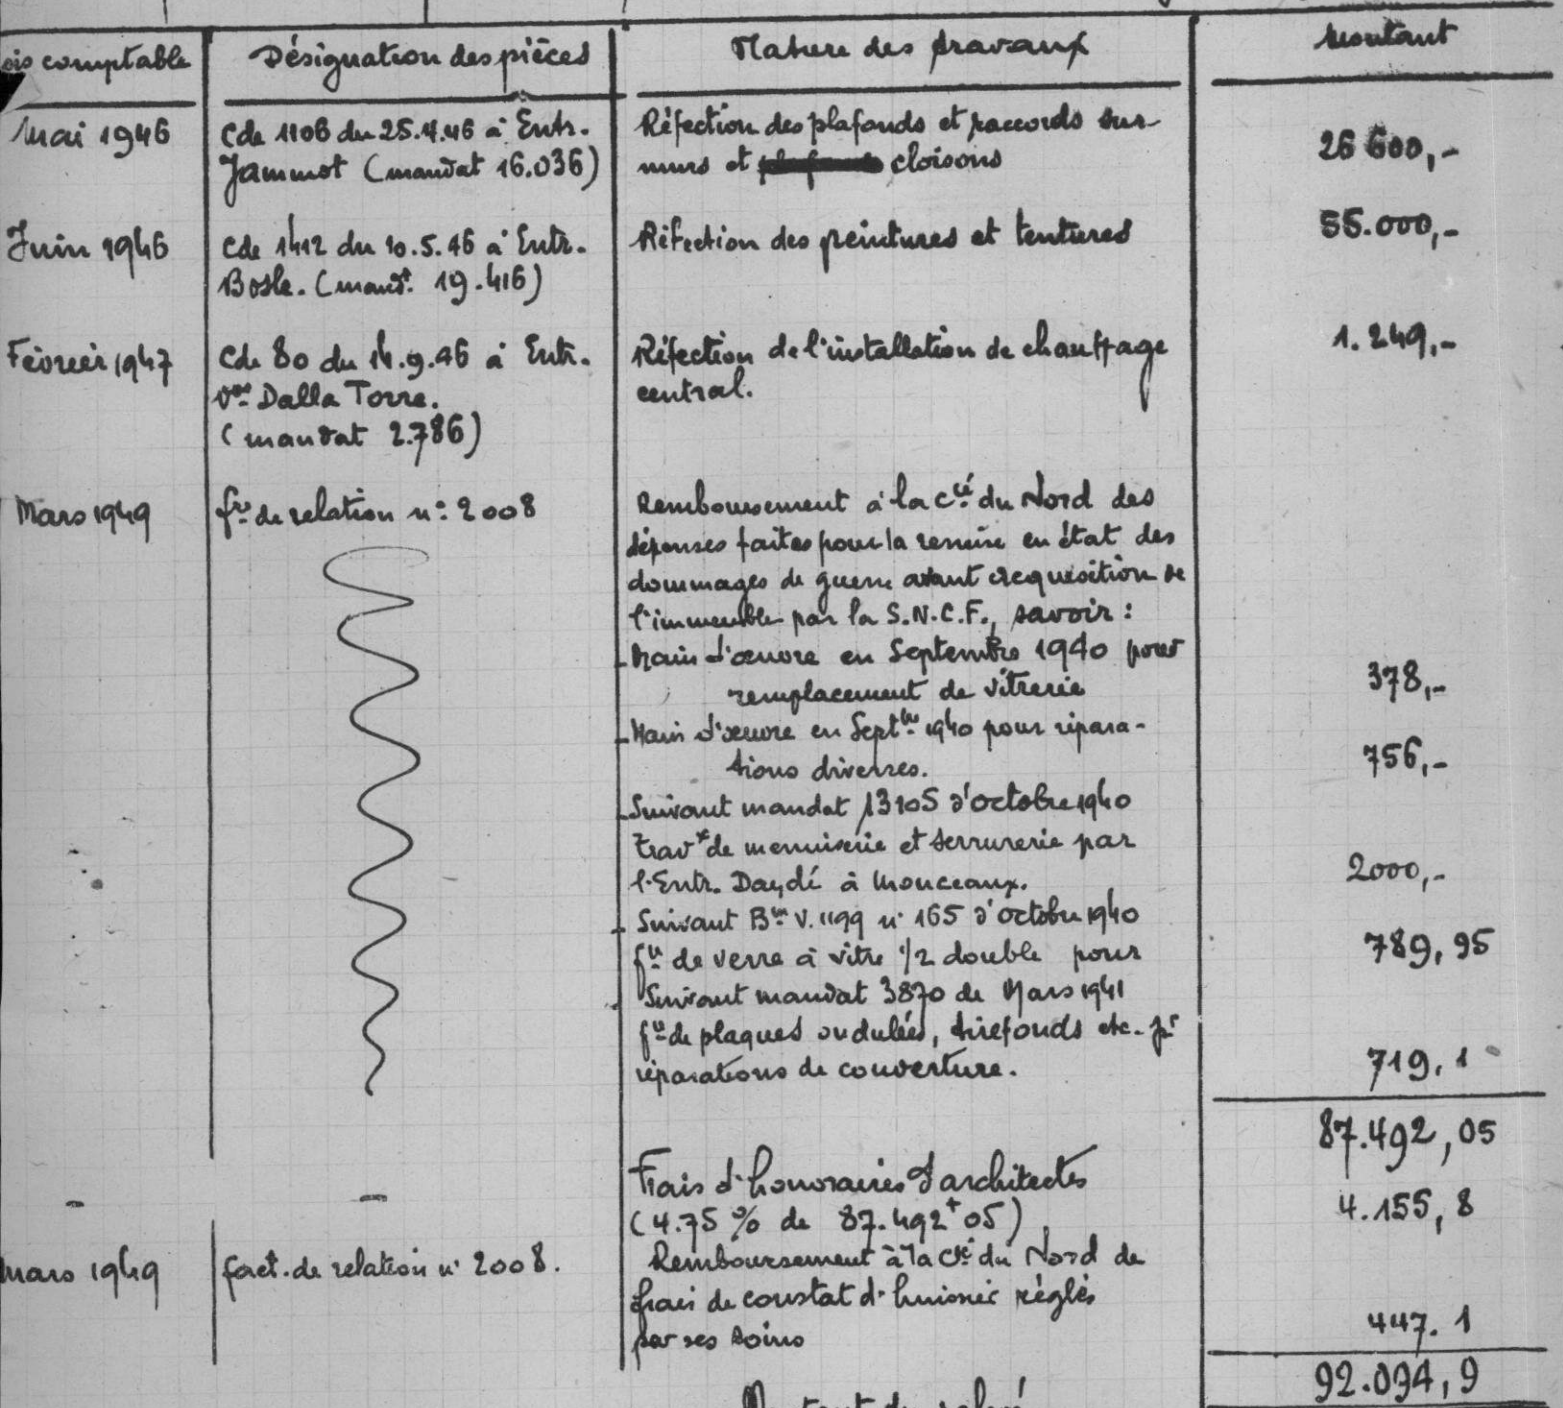 ois comptable
Désignation des pièces
Nature des travaux
Montant
Mai 1946
Cde 1106 du 25.4.46 à Entr.
Jammot (mandat 16.036)
Réfection des plafonds et raccords sur
murs et cloisons
26 600,-
Juin 1946
Cde 1412 du 10.5.46 à Entr.
Bosle. (mandt. 19.416)
Réfection des peintures et tentures
55.000,-
Février 1947
Cde 80 du 14.9.46 à Entr.
Vve Dalla Torre.
(mandat 2.786)
Réfection de l'installation de chauffage
central.
1.249,-
Mars 1949
fre de relation n° 2008
Remboursement à la Cié du Nord des
dépenses faites pour la remise en état des
dommages de guerre avant requisition de
l'immeuble par la S.N.C.F., savoir :
- Main d'œuvre en Septembre 1940 pour
remplacement de vitrerie
378,-
- Main d'œuvre en Septbre 1940 pour répara-
tions diverses.
756,-
- Suivant mandat 13105 d'Octobre 1940
travx de menuiserie et serrurerie par
l'Entr. Daydé à Monceaux.
2000,-
- Suivant Bon V.1199 n° 165 d'Octobre 1940
fre de verre à vitre 1/2 double pour
789,95
- Suivant mandat 3870 de Mars 1941
fre de plaques ondulées, tirefonds etc. pr
réparations de couverture.
719,1
87.492,05
Frais d'honoraires d'architectes
(4.75 % de 87.492+05)
4.155,8
Mars 1949
fact. de relation n° 2008.
Remboursement à la Cié du Nord de
frais de constat d'huissier réglés
par ses soins
447.1
92.094,9